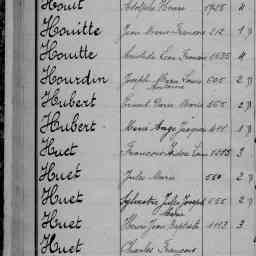 Houit Adolphe Henri 1728 4
Houitte Jean Marie François 212 1
Houitte Aristide Léon François 1535 4
Hourdin Joseph Marie Louis 505 2
Antoine
Hubert Ernest Pierre Marie 555 2
Hubert Marie Ange Jacques 411 1
Huet François Isidore Louis 1285 3
Huet Jules Marie 550 2
Huet Sylvestre Jules Joseph 555 2
Marie
Huet Henri Jean Baptiste 1113 3
Huet Charles François